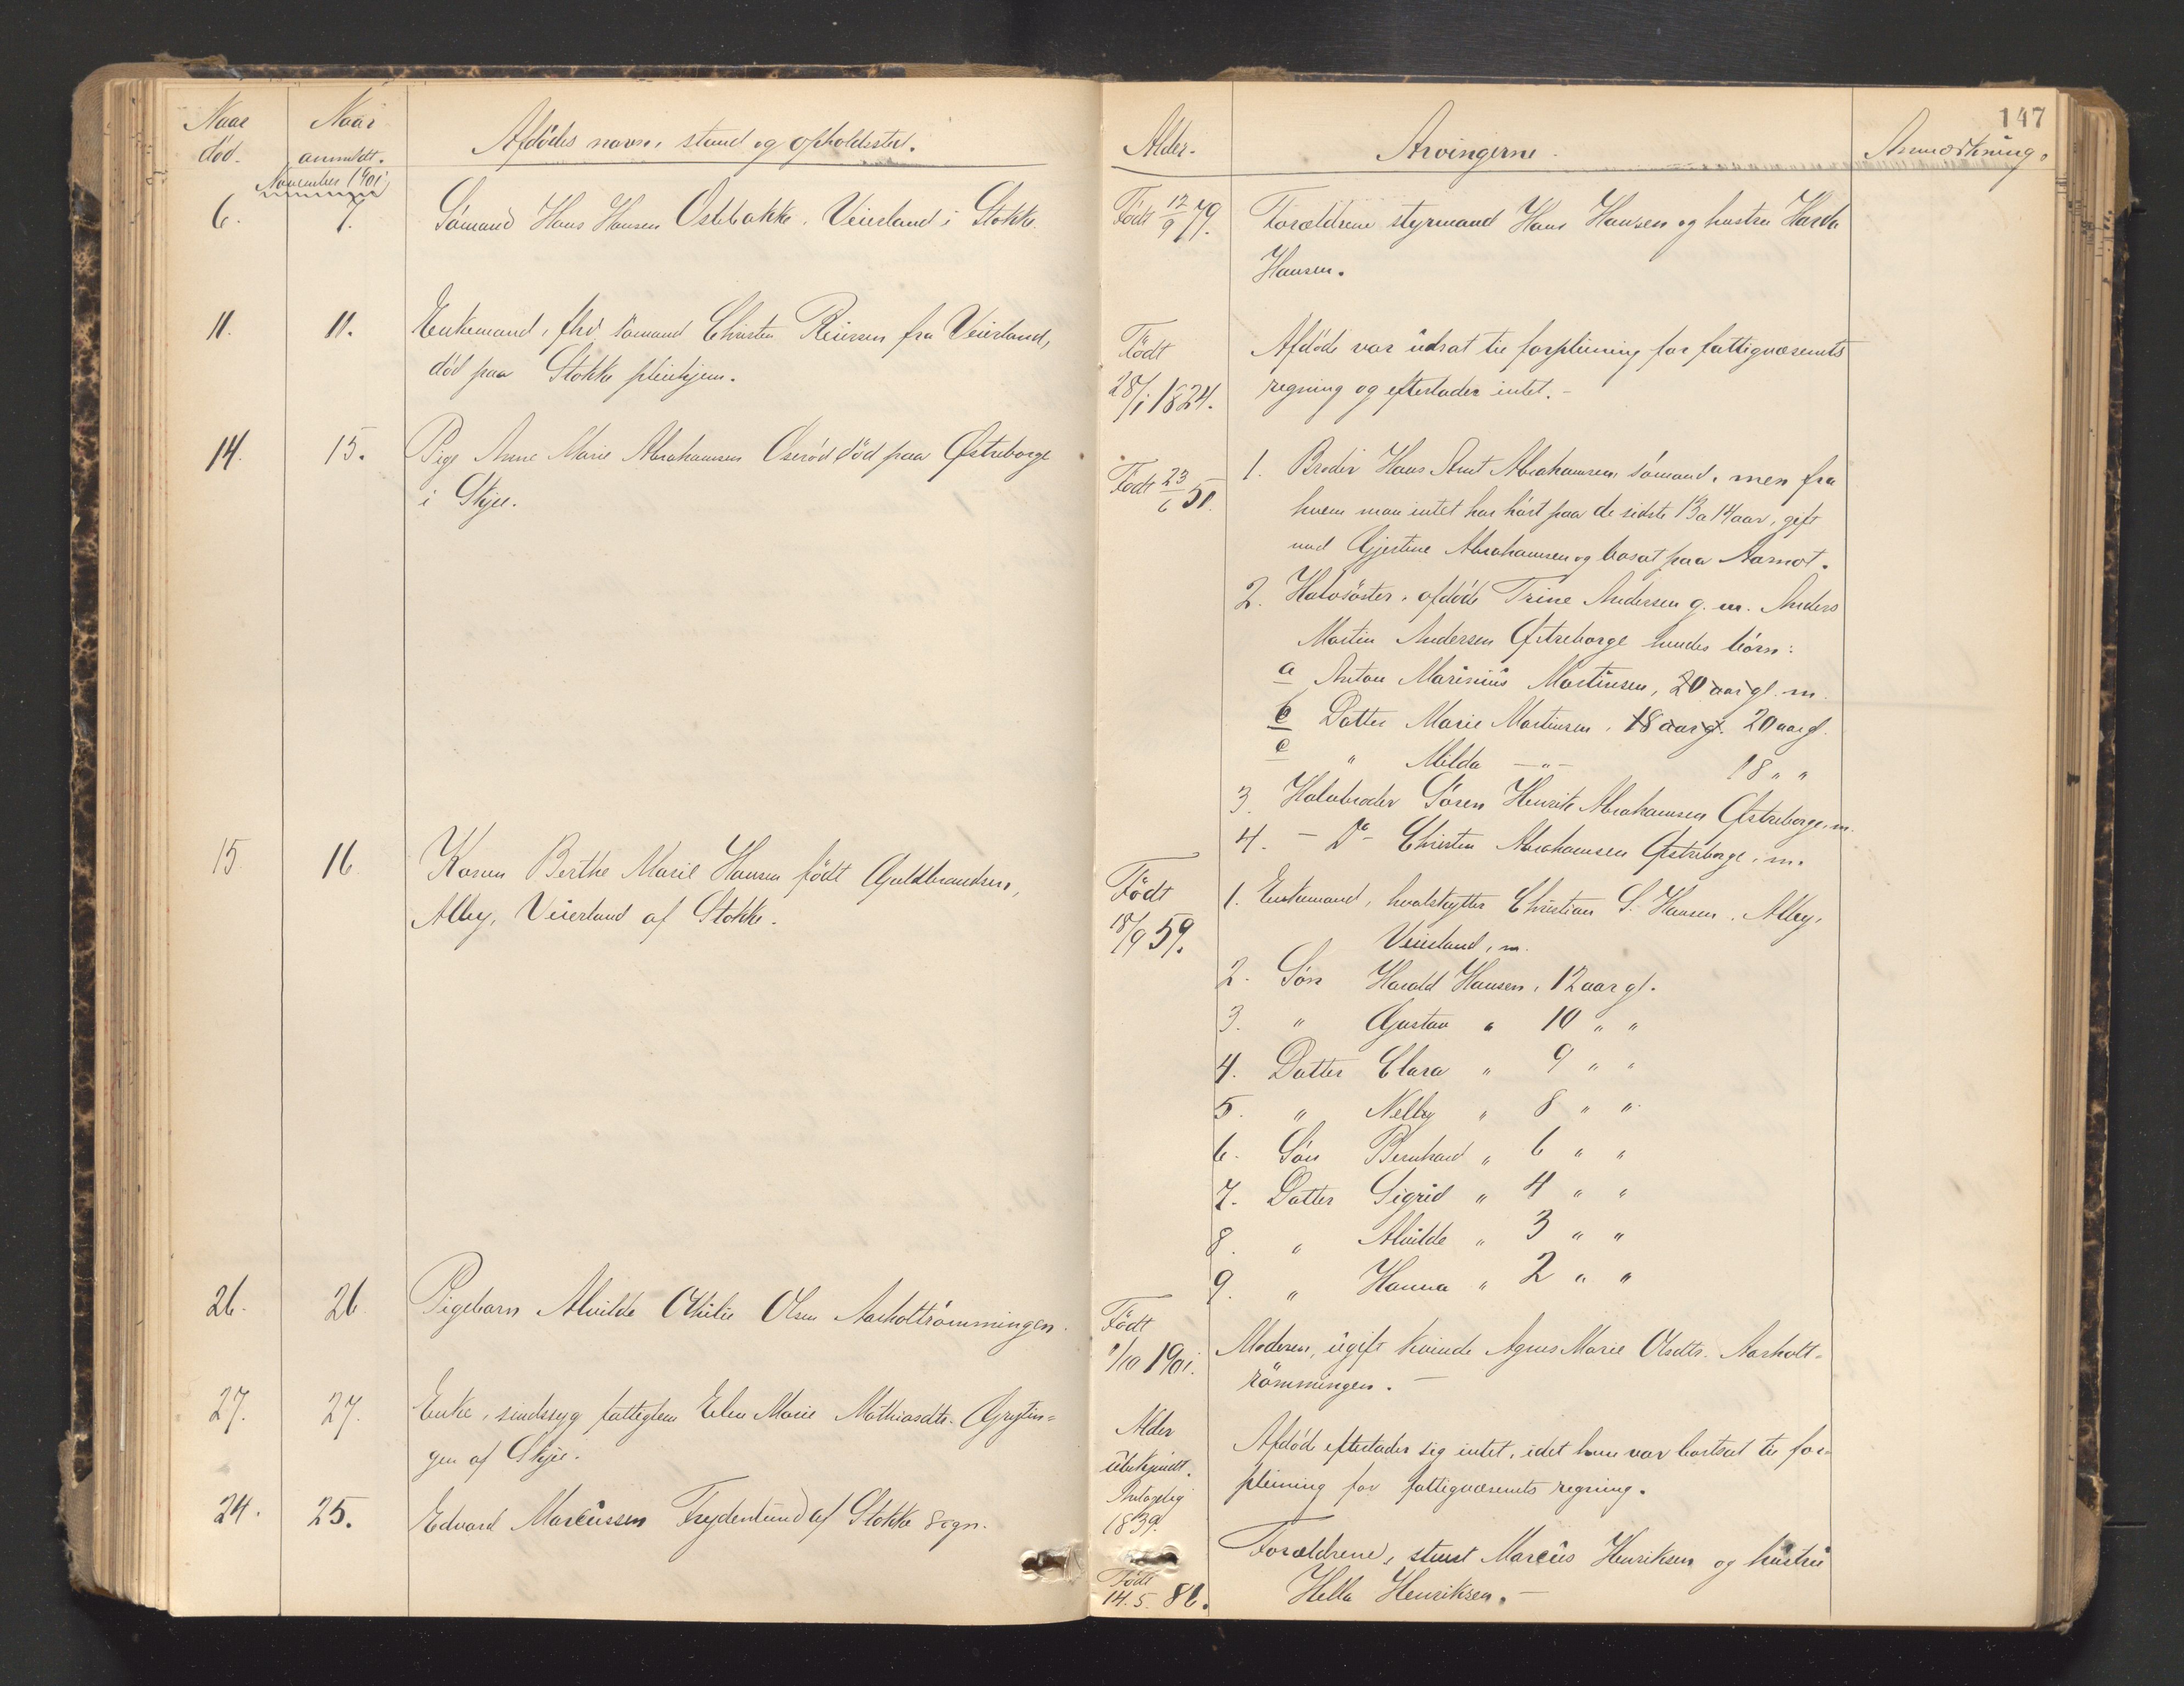 147
Naar død. Naar anmeldt. Afdødes navn, stand og opholdssted. Alder. Arvingerne. Anmærkning.
November 1901.
6. 7. Sømand Hans Hansen Østbakke, Veierland i Stokke. Født 12/9 79. Forældrene styrmand Hans Hansen og hustru
Hansen.
11. 11. Enkemand, fhv sømand Christen Reiersen fra Veierland,
død paa Stokke pleiehjem.
Født
28/1 1824.
Afdøde var udsat til forpleining for fattigvæsenets
regning og efterlader intet. –
14. 15. Pige Anne Marie Abrahamsen Oserød død paa Østreborge
i Skjee.
Født 23/6 51.
1. Broder Hans Arnt Abrahamsen, sømand, men fra
hvem man intet har hørt paa de sidste 13 a 14 aar, gift
med Gjestine Abrahamsen og bosat paa Aamot.
2. Halvsøster, afdøde Trine Andersen g. m. Anders
Martin Andersen Østreborge hendes børn:
a Anton Marinius Martinsen, 20 aar gl. m.
b Datter Marie Martinsen, 18 aar g. 20 aar gl.
c " Milda — " — 18 " "
3. Halvbroder Søren Henrik Abrahamsen Østreborge, m.
4. – Do – Christen Abrahamsen Østreborge, m.
15. 16. Karen Berthe Marie Hansen født Guldbrandsen,
Alby, Veierland af Stokke.
Født
18/9 59.
1. Enkemand, hvalskytter Christian S. Hansen, Alby,
Veierland, m.
2. Søn Harald Hansen, 12 aar gl.
3. " Gustav " 10 " "
4. Datter Clara " 9 " "
5. " Nelly " 8 " "
6. Søn Bernhard " 6 " "
7. Datter Sigrid " 4 " "
8. " Alvilde " 3 " "
9. " Hanna " 2 " "
26. 26. Pigebarn Alvilde Othilie Olsen Aarholtrømmingen.
Født
/10 1901.
Moderen, ugift kvinde Agnes Marie Olsdtr. Aarholt-
rømmingen. –
27. 27. Enke, sindssyg fattiglem Elen Marie Mathiasdtr. Grytin=
gen af Skjee.
Alder
ubekjendt.
Antagelig
1839.
Afdøde efterlader sig intet, idet hun var bortsat til for-
pleining for fattigvæsenets regning.
24. 25. Edvard Marcussen Frydenlund af Stokke sogn.
Født
14.5. 86.
Forældrene, Marcus Henriksen og hustru
Hella Henriksen. –